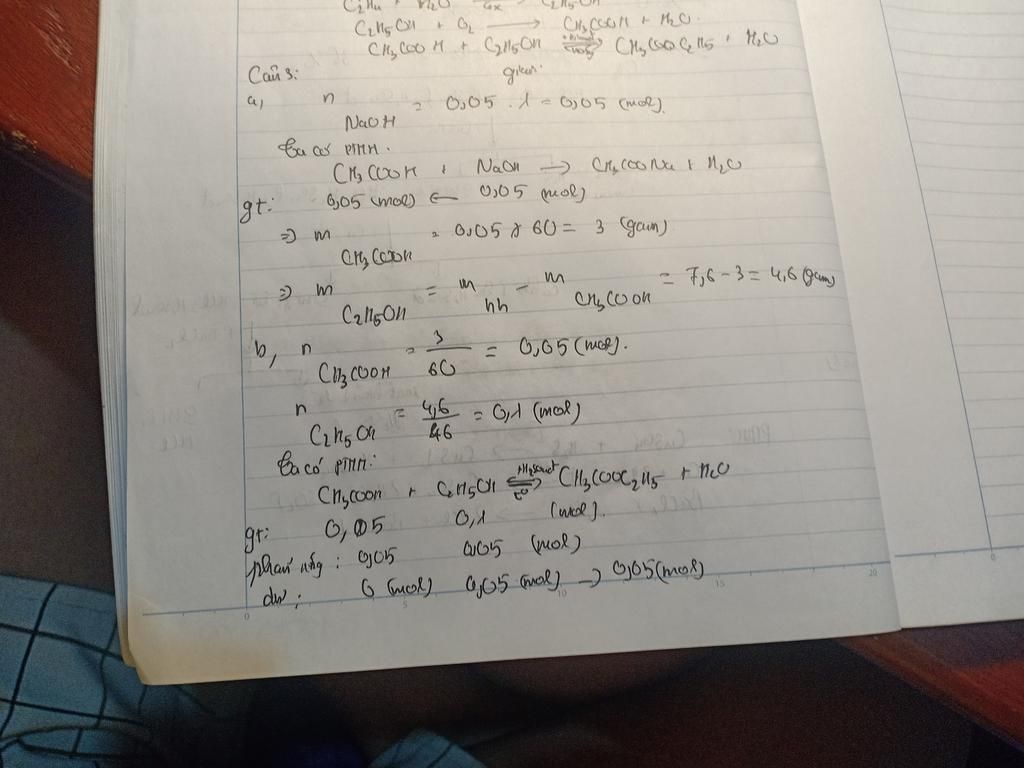 C₂H₅OH + O₂ → CH₃COOH + H₂O.
CH₃COOH + C₂H₅OH ⇌ CH₃COOC₂H₅ + H₂O
Câu 3:
a, n NaOH = 0,05 . 1 = 0,05 (mol).
Ta có PTHH.
CH₃COOH + NaOH → CH₃COONa + H₂O
gt: 0,05 (mol) ← 0,05 (mol)
=> m CH₃COOH = 0,05 x 60 = 3 (gam)
=> m C₂H₅OH = m hh - m CH₃COOH = 7,6 - 3 = 4,6 (gam)
b, n CH₃COOH = 3/60 = 0,05 (mol).
n C₂H₅OH = 4,6/46 = 0,1 (mol)
Ta có PTHH:
CH₃COOH + C₂H₅OH ⇌ CH₃COOC₂H₅ + H₂O
gt: 0,05 0,1 (mol).
phản ứng: 0,05 0,05 (mol)
dư: 0 (mol) 0,05 (mol) → 0,05 (mol)
0 5 10 15 20